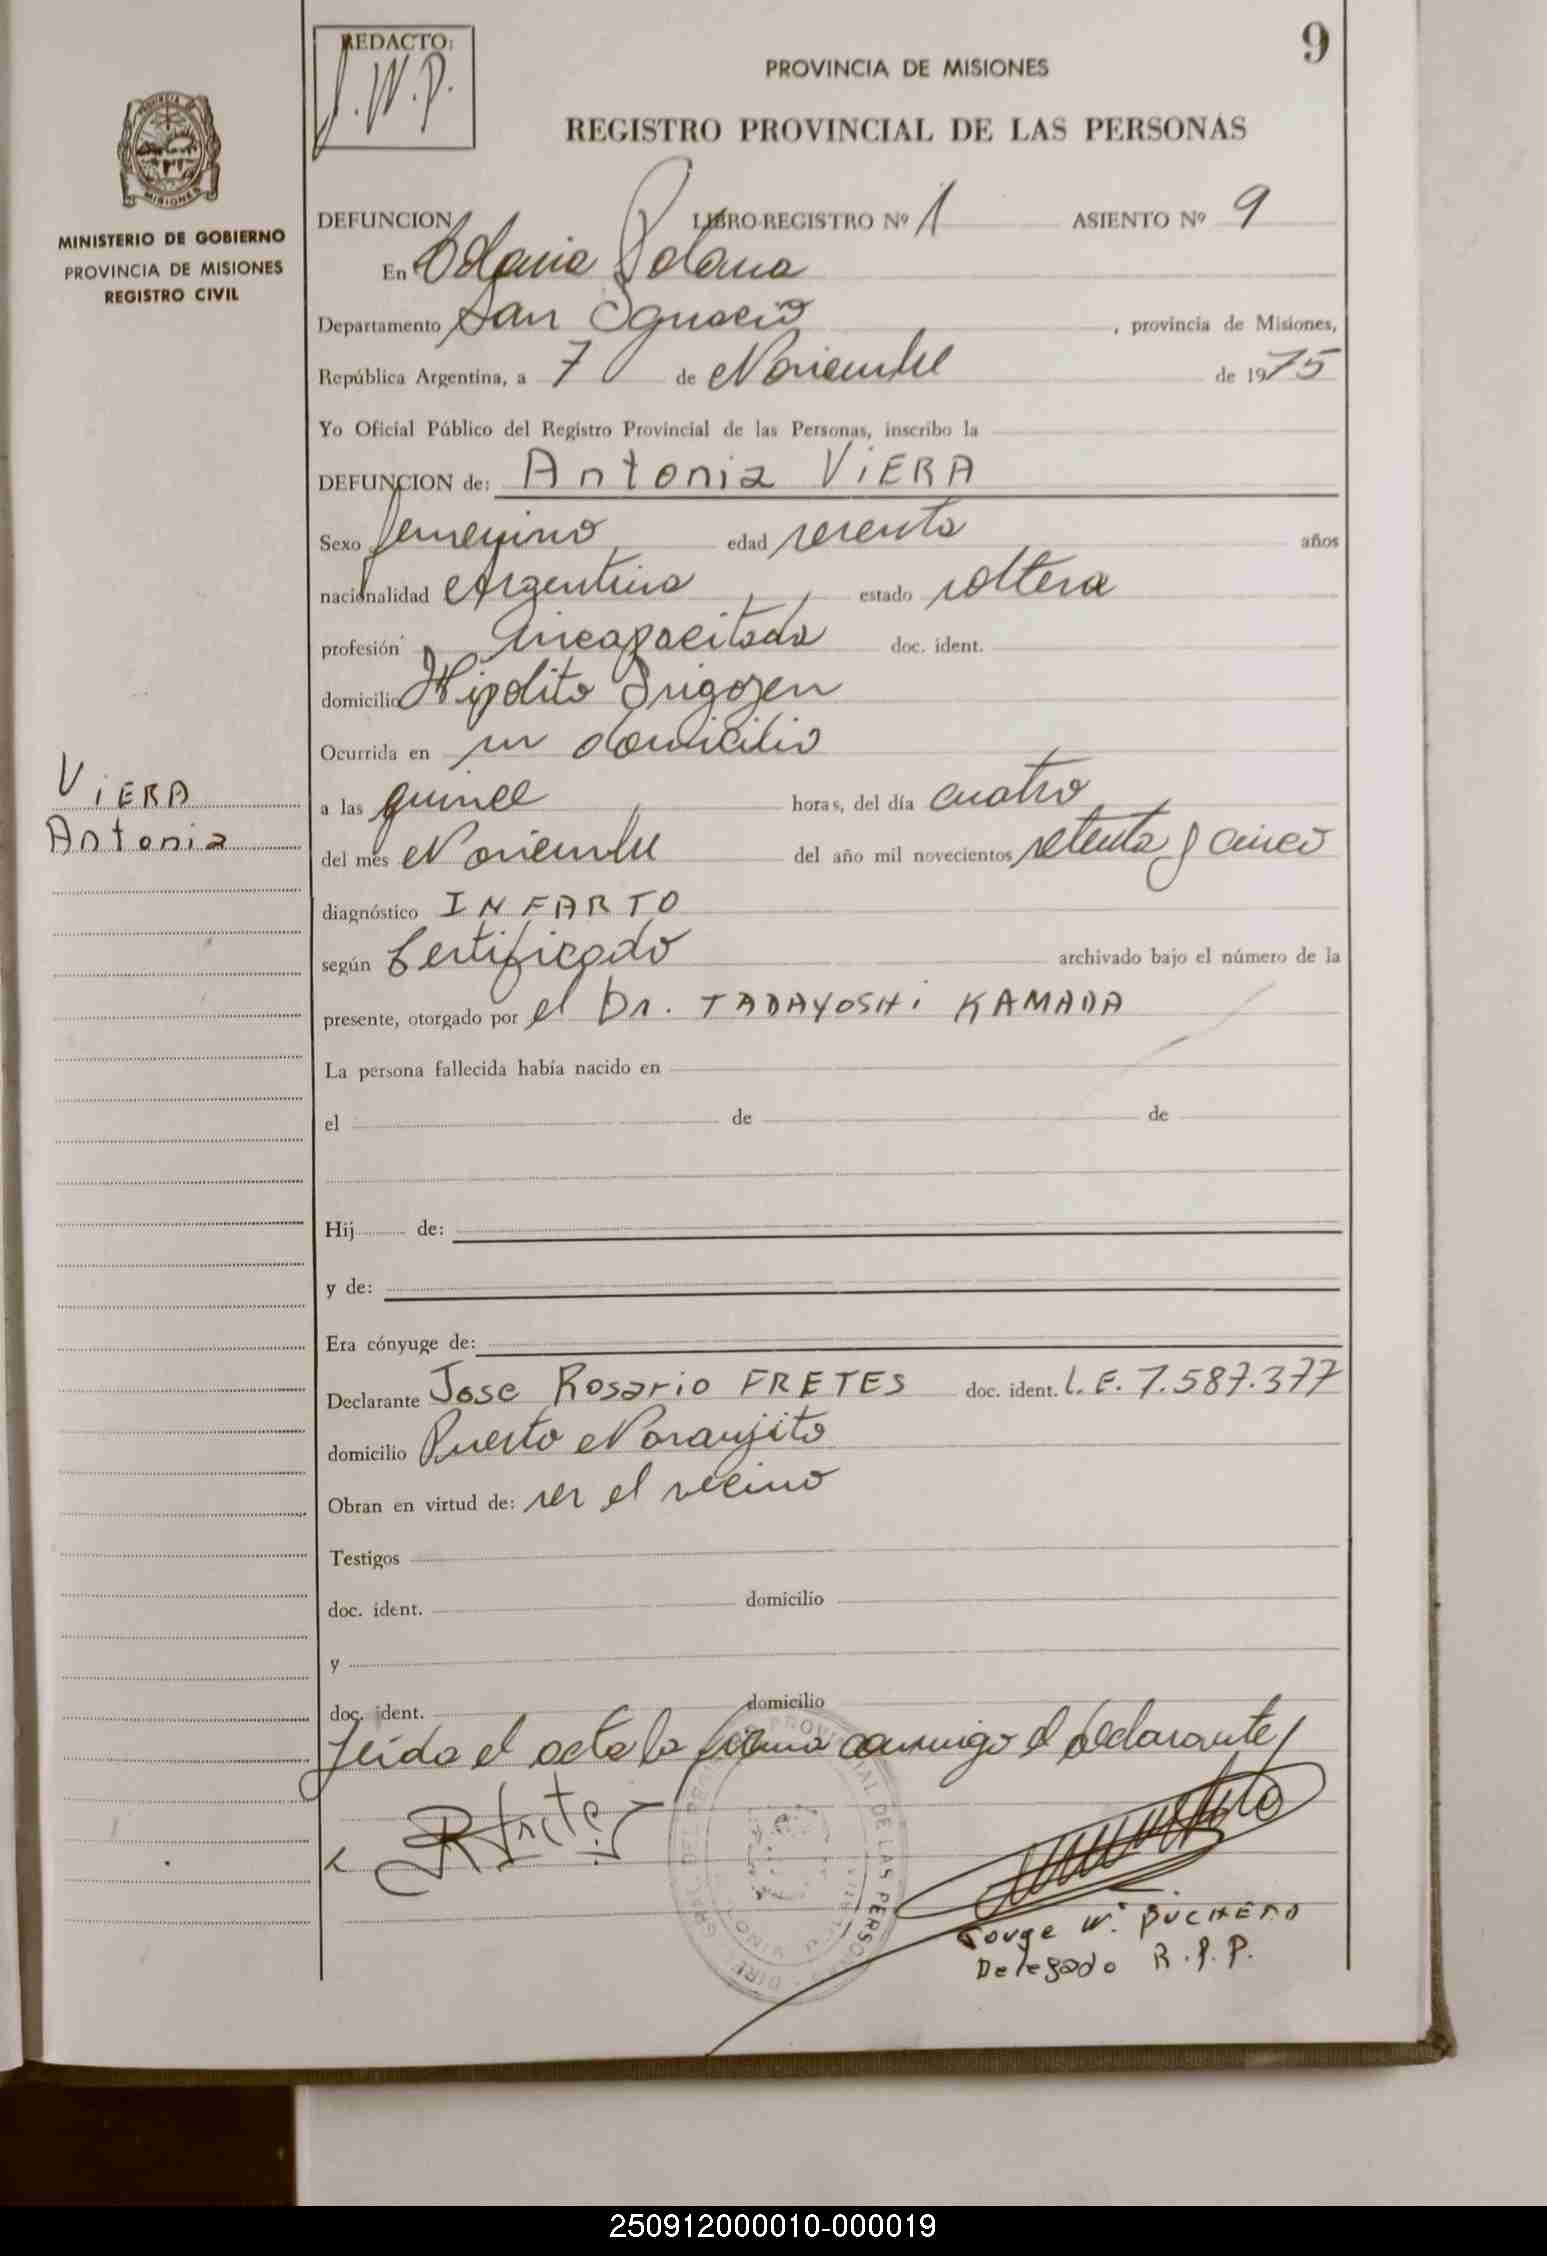 9
REDACTO:
J.W.P.
PROVINCIA DE MISIONES
REGISTRO PROVINCIAL DE LAS PERSONAS
MINISTERIO DE GOBIERNO
PROVINCIA DE MISIONES
REGISTRO CIVIL
DEFUNCION LIBRO-REGISTRO Nº 1 ASIENTO Nº 9
En Colonia Polana
Departamento San Ignacio, provincia de Misiones,
República Argentina, a 7 de Noviembre de 1975
Yo Oficial Público del Registro Provincial de las Personas, inscribo la
DEFUNCION de: Antonia ViERA
Sexo femenino edad sesenta años
nacionalidad Argentina estado soltera
profesión incapacitada doc. ident.
domicilio Hipolito Irigoyen
Ocurrida en su domicilio
a las quince horas, del día cuatro
del mes Noviembre del año mil novecientos setenta y cinco
diagnóstico INFARTO
según Certificado archivado bajo el número de la
presente, otorgado por el Dr. TADAYOSHi KAMADA
La persona fallecida había nacido en
el de de
Hij de:
y de:
Era cónyuge de:
Declarante Jose Rosario FRETES doc. ident. L.E. 7.587.377
domicilio Puerto Naranjito
Obran en virtud de: ser el vecino
Testigos
doc. ident. domicilio
y
doc. ident. domicilio
Leída el acta la firma conmigo el declarante
R Fretes
Jorge W. PUCHETA
Delegado R.P.P.
ViERA
Antonia
250912000010-000019